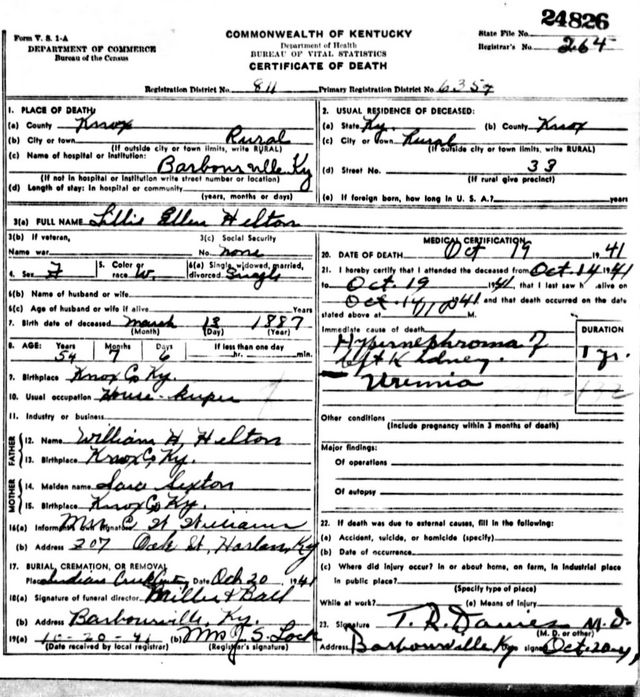 24826
Form V. S. 1-A
DEPARTMENT OF COMMERCE
Bureau of the Census
COMMONWEALTH OF KENTUCKY
Department of Health
BUREAU OF VITAL STATISTICS
CERTIFICATE OF DEATH
State File No.
Registrar's No. 264
Registration District No. 811 Primary Registration District No. 6357
1. PLACE OF DEATH
(a) County Knox
(b) City or town Rural
(If outside city or town limits, write RURAL)
(c) Name of hospital or institution: Barbourville Ky
(If not in hospital or institution write street number or location)
(d) Length of stay: In hospital or community
(years, months or days)
2. USUAL RESIDENCE OF DECEASED:
(a) State Ky. (b) County Knox
(c) City or town Rural
(If outside city or town limits, write RURAL)
(d) Street No. 33
(If rural give precinct)
(e) If foreign born, how long in U. S. A.? years
3(a) FULL NAME Lillie Ellen Helton
3(b) If veteran, Name war
3(c) Social Security No. none
4. Sex F 5. Color or race W. 6(a) Single, widowed, married, divorced Single
6(b) Name of husband or wife
6(c) Age of husband or wife if alive
7. Birth date of deceased March 13 1887
(Month) (Day) (Year)
8. AGE: Years 54 Months 7 Days 6 If less than one day hr. min.
9. Birthplace Knox Co Ky.
10. Usual occupation House-keeper
11. Industry or business
FATHER
12. Name William H. Helton
13. Birthplace Knox Co, Ky.
MOTHER
14. Maiden name Sara Sexton
15. Birthplace Knox Co Ky.
16(a) Informant's own signature Mrs. C W Williams
(b) Address 207 Oak St, Harlan, Ky
17. BURIAL, CREMATION, OR REMOVAL
Place Indian Creek Date Oct 20 1941
18(a) Signature of funeral director Miller & Ball
(b) Address Barbourville, Ky.
19(a) 10-20-41 (b) Mrs J. S. Lock
(Date received by local registrar) (Registrar's signature)
MEDICAL CERTIFICATION
20. DATE OF DEATH Oct 19 1941
21. I hereby certify that I attended the deceased from Oct 14 1941
to Oct 19 1941 that I last saw h alive on
Oct 1941 and that death occurred on the date
stated above at M.
Immediate cause of death
DURATION
Hypernephroma of
Left Kidney. 1 yr.
Uremia
Other conditions
(Include pregnancy within 3 months of death)
Major findings:
Of operations
Of autopsy
22. If death was due to external causes, fill in the following:
(a) Accident, suicide, or homicide (specify)
(b) Date of occurrence
(c) Where did injury occur? In or about home, on farm, in industrial place
in public place?
(Specify type of place)
While at work? (e) Means of injury
23. Signature T. R. Davies M.D.
(M. D. or other)
Address Barbourville Ky signed Oct 20 41